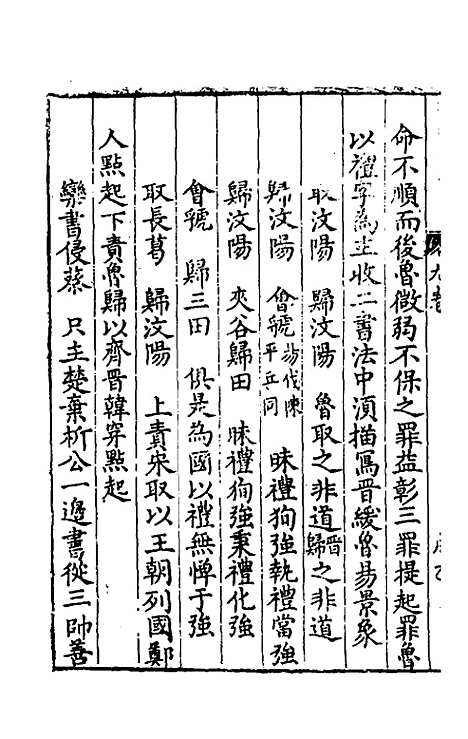 命不順而後魯微弱不保之罪益彰三罪提起罪魯
以禮字為主收二書法中須描寫晉緩魯易景象
取汶陽 歸汶陽 魯取之非道晉歸之非道
歸汶陽 會虢 平丘同 昧禮狥強執禮當強
歸汶陽 夾谷歸田 昧禮狥強秉禮化強
會虢 歸三田 俱是為國以禮無憚于強
取長葛 歸汶陽 上責宋取以王朝列國鄭
人點起下責魯歸以齊晉韓穿點起
欒書侵蔡 只主楚棄析公一邉書從三帥善
九卷